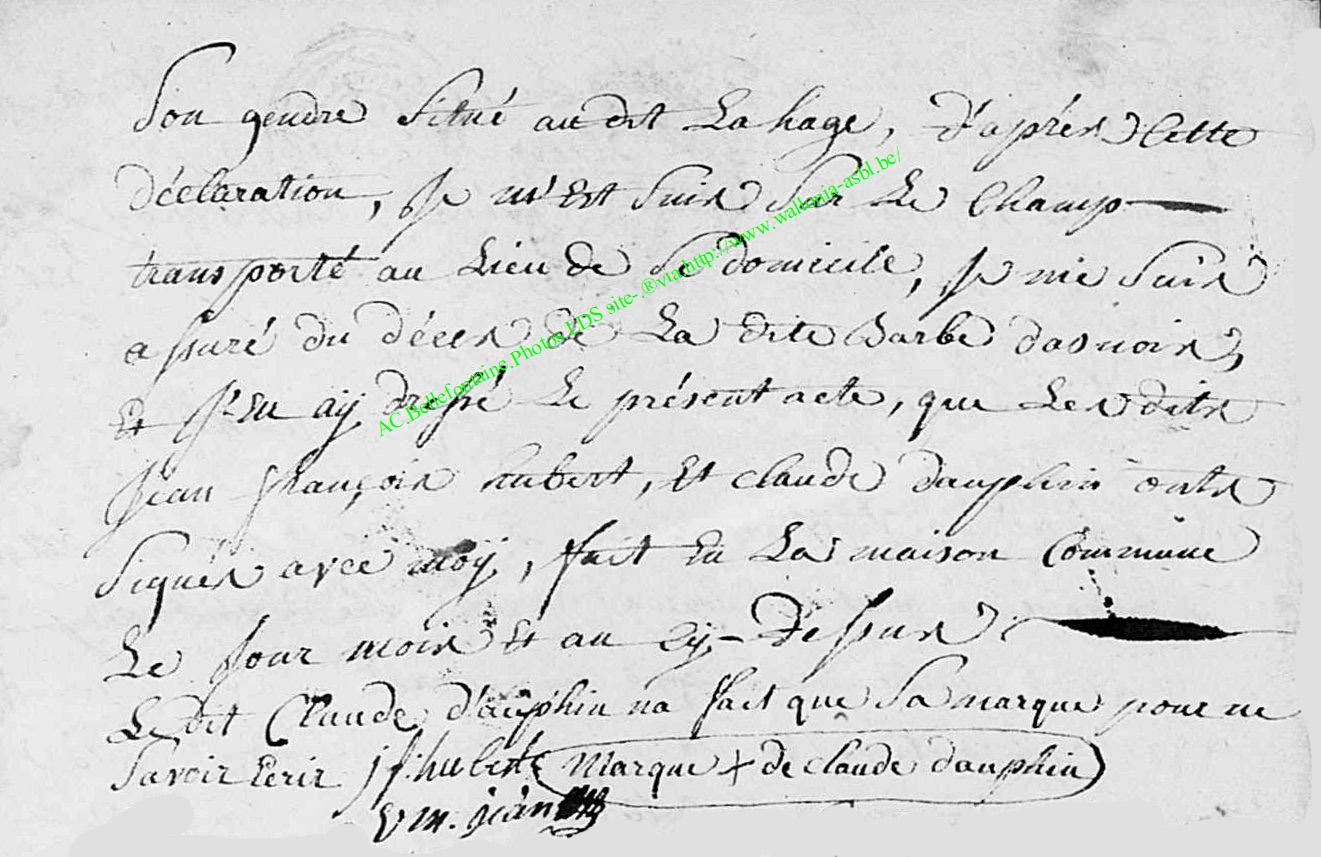 Son gendre Situé audit Lahage, d'aprés Cette
déclaration, Je m'Est Suis Sur Le Champ
transporté au Lieu de Se domicile, Je me Suis
assuré du décés de La dite Barbe dasnois,
Et J'en aÿ dressé Le présent acte, que Les dits
Jean françois hubert, Et claude dauphin onts
Signés avec moÿ, fait En La maison Commune
Le Jour mois Et an Cÿ-Dessus
Le dit Claude d'auphin na fait que Sa marque pour ne
Savoir Ecrir jf hubert Marque + de claude dauphin
jean
AC.Bellefontaine.Photos.LDS site-.®via http://www.wallonia-asbl.be/